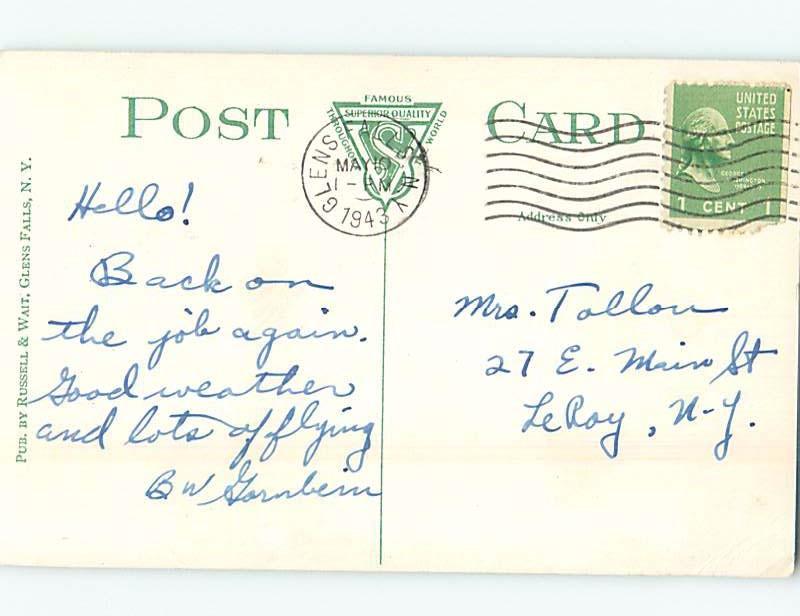 POST CARD
FAMOUS
SUPERIOR QUALITY
THROUGHOUT
WORLD
GLENS FALLS
MAY 10
1 - AM
1943
N.Y.
UNITED
STATES
POSTAGE
GEORGE
WASHINGTON
1 CENT 1
Address Only
PUB. BY RUSSELL & WAIT, GLENS FALLS, N. Y.
Hello!
Back on
the job again.
Good weather
and lots of flying
B W Gornbein
Mrs. Tallon
27 E. Main St
LeRoy, N-Y.